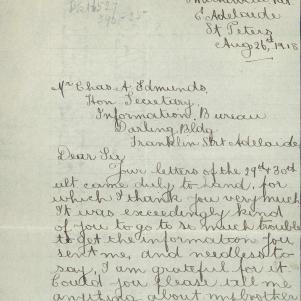 E. Adelaide
St Peters
Aug 26th, 1918
Mr Chas. A. Edmunds,
Hon Secretary,
Information, Bureau
Darling, Bldg
Franklin Srt Adelaide
Dear Sir
Your letters of the 29th & 30th
ult came duly to hand, for
which I thank you very much
It was exceedingly kind
of you to go to so much trouble
to get the information you
sent me, and needless to
say, I am grateful for it.
Could you please tell me
anything about my brother